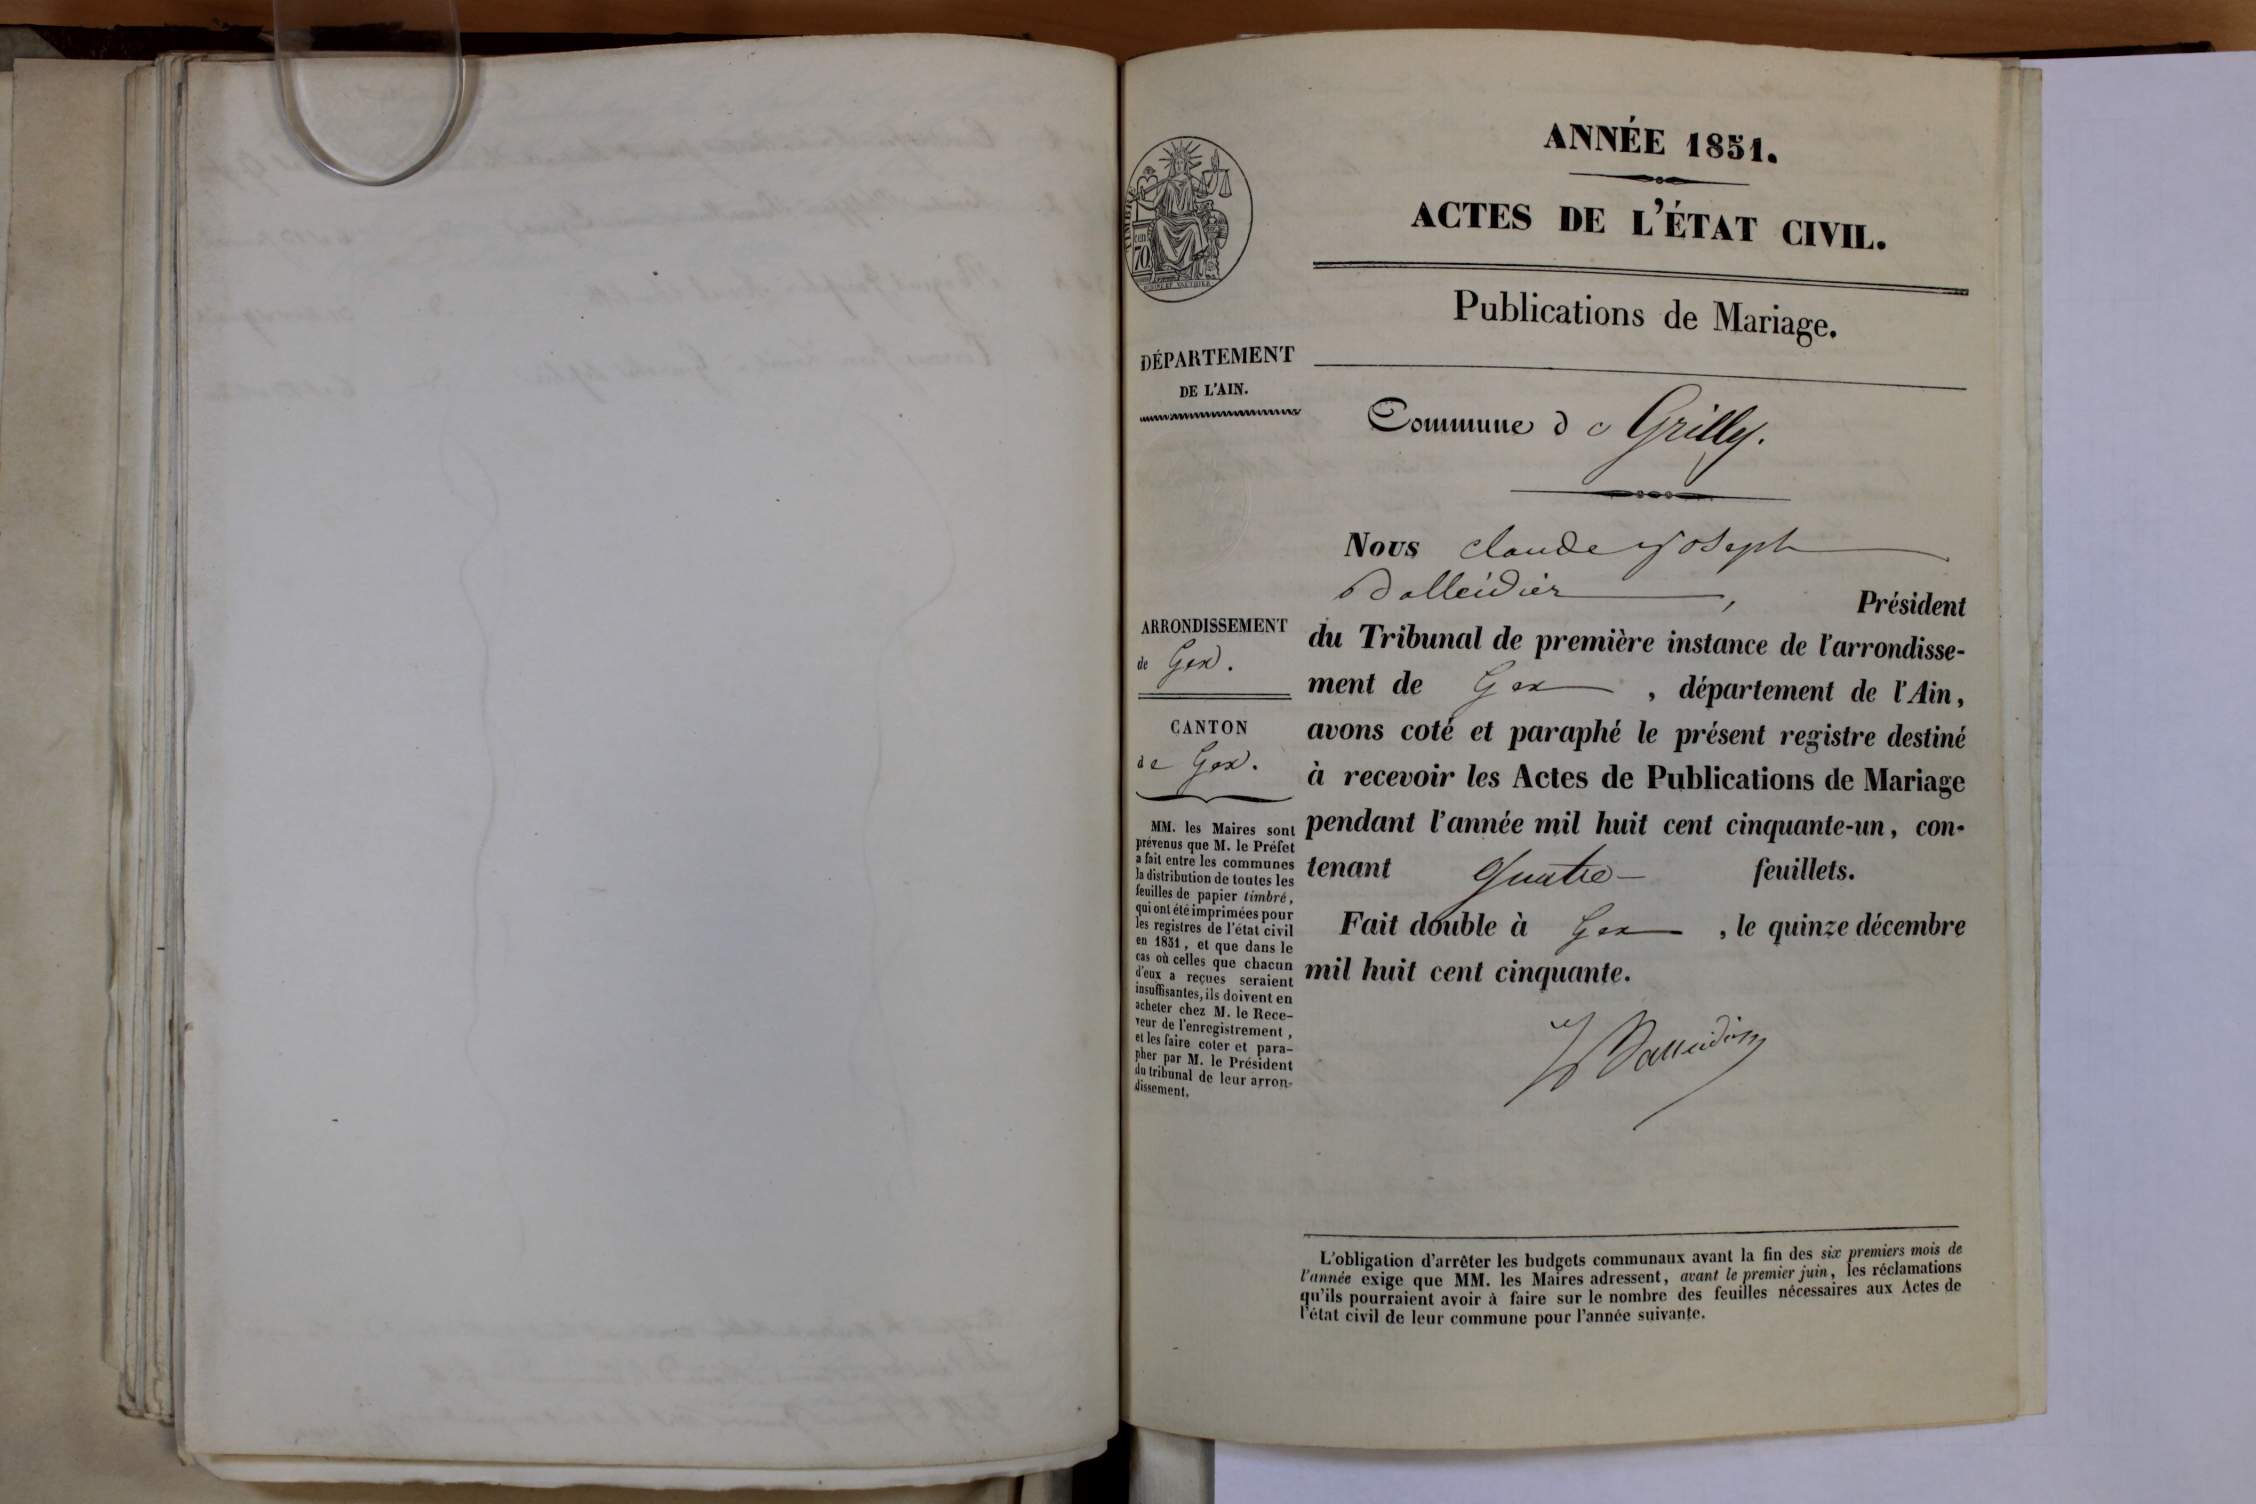 ANNÉE 1851.
ACTES DE L'ÉTAT CIVIL.
Publications de Mariage.
TIMBRE
70
DÉPARTEMENT
DE L'AIN.
Commune de Grilly.
ARRONDISSEMENT
de Gex.
CANTON
de Gex.
MM. les Maires sont
prévenus que M. le Préfet
a fait entre les communes
la distribution de toutes les
feuilles de papier timbré,
qui ont été imprimées pour
les registres de l'état civil
en 1851, et que dans le
cas où celles que chacun
d'eux a reçues seraient
insuffisantes, ils doivent en
acheter chez M. le Rece-
veur de l'enregistrement,
et les faire coter et para-
pher par M. le Président
du tribunal de leur arron-
dissement.
Nous Claude Joseph
Balleidier, Président
du Tribunal de première instance de l'arrondisse-
ment de Gex, département de l'Ain,
avons coté et paraphé le présent registre destiné
à recevoir les Actes de Publications de Mariage
pendant l'année mil huit cent cinquante-un, con-
tenant quatre feuillets.
Fait double à Gex, le quinze décembre
mil huit cent cinquante.
Balleidier
L'obligation d'arrêter les budgets communaux avant la fin des six premiers mois de
l'année exige que MM. les Maires adressent, avant le premier juin, les réclamations
qu'ils pourraient avoir à faire sur le nombre des feuilles nécessaires aux Actes de
l'état civil de leur commune pour l'année suivante.